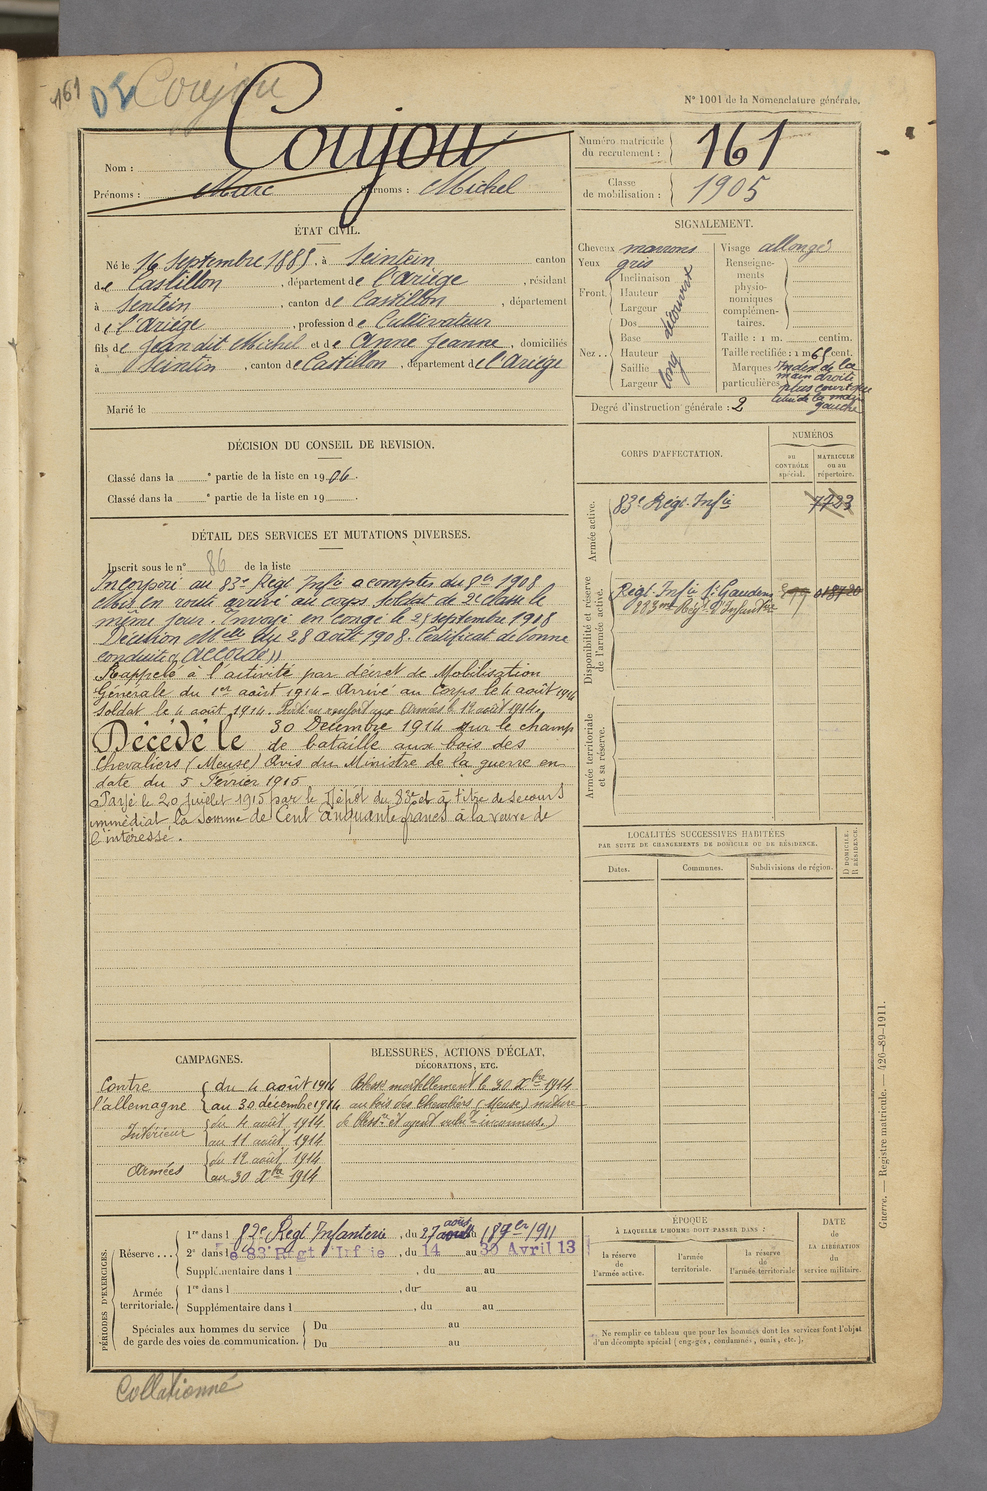 161 DC Coujou
N° 1001 de la Nomenclature générale.
Nom : Coujou
Prénoms : Marc Surnoms : Michel
Numéro matricule du recrutement : 161
Classe de mobilisation : 1905
ÉTAT CIVIL.
Né le 16 Septembre 1885, à Seintein canton
de Castillon, département de l'Ariège, résidant
à Sentein, canton de Castillon, département
de l'Ariège, profession de Cultivateur
fils de Jean dit Michel et de Anne Jeanne, domiciliés
à Seintin, canton de Castillon, département de l'Ariège
Marié le
SIGNALEMENT.
Cheveux marrons
Yeux gris
Front Inclinaison
Hauteur
Largeur
découvert
Nez.. Dos
Base
Hauteur
Saillie
Largeur
long
Visage allongé
Renseignements physionomiques complémentaires.
Taille : 1 m. centim.
Taille rectifiée : 1 m 65 cent.
Marques particulières Index de la
main droite
plus court que
celui de la main
gauche
Degré d'instruction générale : 2
DÉCISION DU CONSEIL DE REVISION.
Classé dans la e partie de la liste en 1906.
Classé dans la e partie de la liste en 19 .
CORPS D'AFFECTATION.
NUMÉROS
au CONTRÔLE spécial.
MATRICULE ou au répertoire.
Armée active.
83e Régt. Infie 7723
Disponibilité et réserve de l'armée active.
Régt Infie St Gaudens 018720
283me Régt d'Infanterie
Armée territoriale et sa réserve.
DÉTAIL DES SERVICES ET MUTATIONS DIVERSES.
Inscrit sous le n° 86 de la liste
Incorporé au 83e Régt Infie à compter du 1908
Mis en route arrivé au corps Soldat de 2e classe le
même jour. Envoyé en congé le 25 septembre 1908
Décision Mlle du 28 août 1908. Certificat de bonne
conduite "Accordé"
Rappelé à l'activité par décret de Mobilisation
Générale du 1er août 1914 - Arrivé au Corps le 4 août 1914
Soldat le 4 août 1914. Parti en renfort aux Armées le 12 août 1914.
Décédé le 30 Décembre 1914 sur le champ
de bataille aux bois des
Chevaliers (Meuse) Avis du Ministre de la guerre en
date du 5 Février 1915
Payé le 20 Juillet 1915 par le Dépôt du 83e et à titre de secours
immédiat la somme de Cent cinquante francs à la veuve de
l'intéressé.
LOCALITÉS SUCCESSIVES HABITÉES
PAR SUITE DE CHANGEMENTS DE DOMICILE OU DE RÉSIDENCE.
Dates. Communes. Subdivisions de région.
D DOMICILE. R RÉSIDENCE.
CAMPAGNES.
Contre
l'allemagne
du 4 août 1914
au 30 décembre 1914
Intérieur
du 4 août 1914
au 11 août 1914
Armées
du 12 août 1914
au 30 Xbre 1914
BLESSURES, ACTIONS D'ÉCLAT,
DÉCORATIONS, ETC.
Blessé mortellement le 30 Xbre 1914
au bois des Chevaliers (Meuse) nature
de bless.re et agent vuln.t inconnus.)
PÉRIODES D'EXERCICES.
Réserve ... 1re dans l 83e Régt Infanterie, du 27 août au 18 1911
2e dans le 83e Régt d'Infie, du 14 au 30 Avril 13
Supplémentaire dans l , du au
Armée territoriale. 1re dans l , du au
Supplémentaire dans l , du au
Spéciales aux hommes du service de garde des voies de communication.
Du au
Du au
ÉPOQUE
À LAQUELLE L'HOMME DOIT PASSER DANS :
la réserve de l'armée active.
l'armée territoriale.
la réserve de l'armée territoriale
DATE de LA LIBÉRATION du service militaire.
Ne remplir ce tableau que pour les hommes dont les services font l'objet
d'un décompte spécial (engagés, condamnés, omis, etc.).
Guerre. — Registre matricule. — 426-89-1911.
Collationné